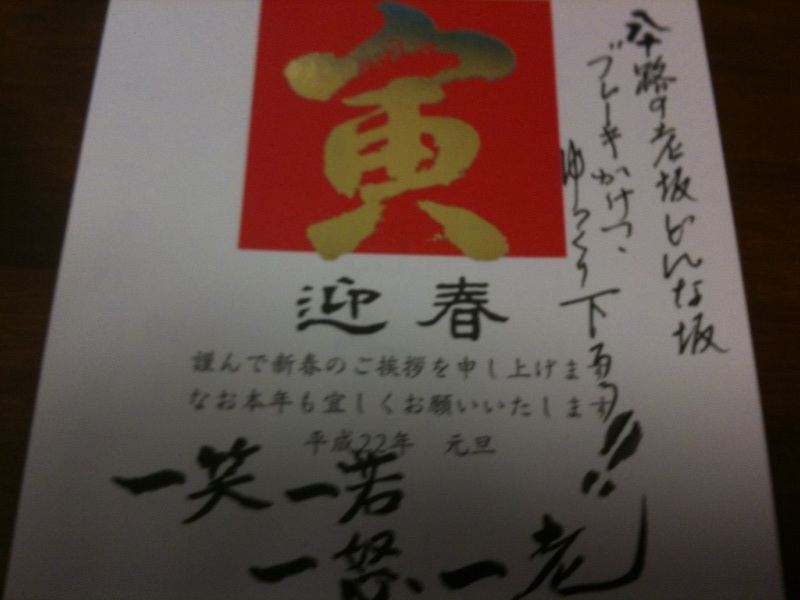 寅
迎春
謹んで新春のご挨拶を申し上げます
なお本年も宜しくお願いいたします
平成22年 元旦
八十路の老坂どんな坂
ブレーキかけつゝ
ゆっくり下ろう!!
一笑一若
一怒一老